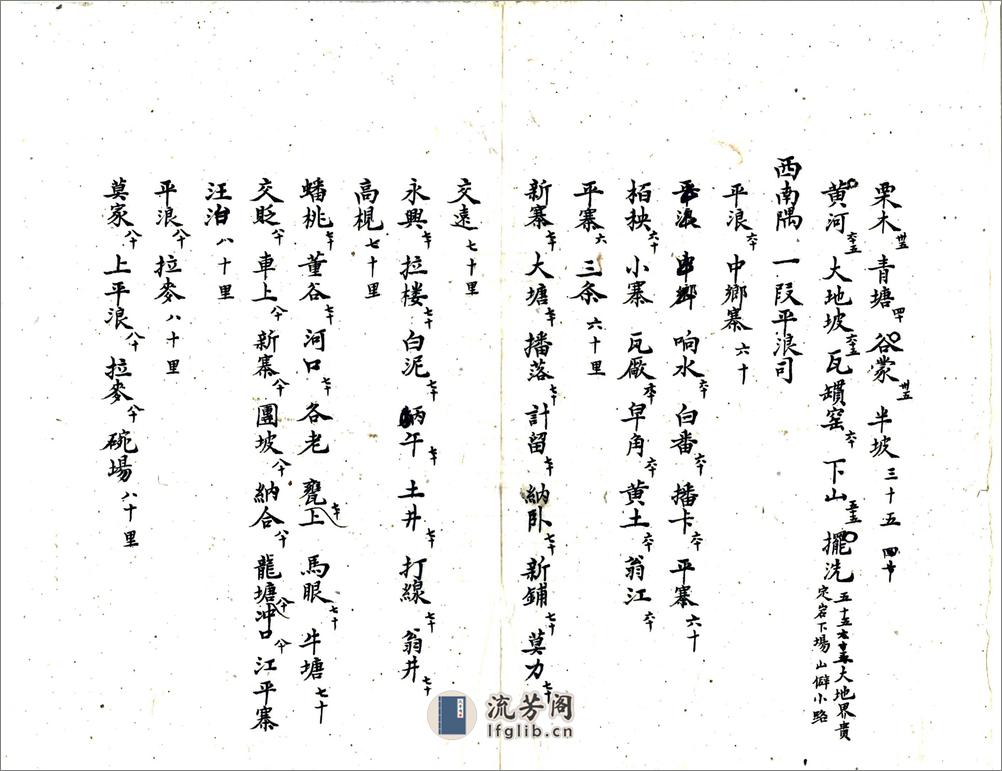 栗木 卅五 青塘 四十 谷蒙 卅五 半坡 三十五 四十
黄河 六五 大地坡 六五 瓦罎窑 六十 下山 五五 擺洗 五十五 大地界貴
定岩下場山僻小路
西南隅一段平浪司
平浪 六十 中鄉寨 六十
平浪 中鄉 响水 六十 白番 六十 播卡 六十 平寨 六十
栢秧 六十 小寨 瓦厰 六十 早角 六十 黄土 六十 翁江 六十
平寨 六 三条 六十里
新寨 七十 大塘 播落 七十 計留 七十 納卧 七十 新鋪 七十 莫力 七十
交遠 七十里
永興 七十 拉楼 七十 白泥 七十 午 七十 土井 七十 打線 七十 翁井 七十
高梘 七十里
蟠桃 七十 董谷 七十 河口 七十 各老 甕上 七十 馬眼 七十 牛塘 七十
交眨 八十 車上 八十 新寨 八十 團坡 八十 納合 八十 龍塘 八十 冲口 八十 江平寨
汪治 八十里
平浪 八十 拉麥 八十里
莫家 八十 上平浪 八十 拉麥 八十 碗場 八十里
流芳阁
lfglib.cn